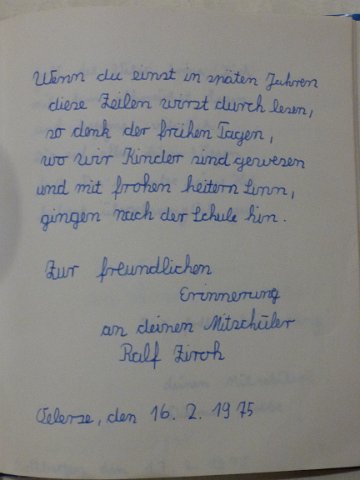 Wenn du einst in späten Jahren
diese Zeilen wirst durch lesen,
so denk der frühen Tagen,
wo wir Kinder sind gewesen
und mit frohen heitern Sinn,
gingen nach der Schule hin.
Zur freundlichen
Erinnerung
an deinen Mitschüler
Ralf Ziroh
den 16. 2. 1975